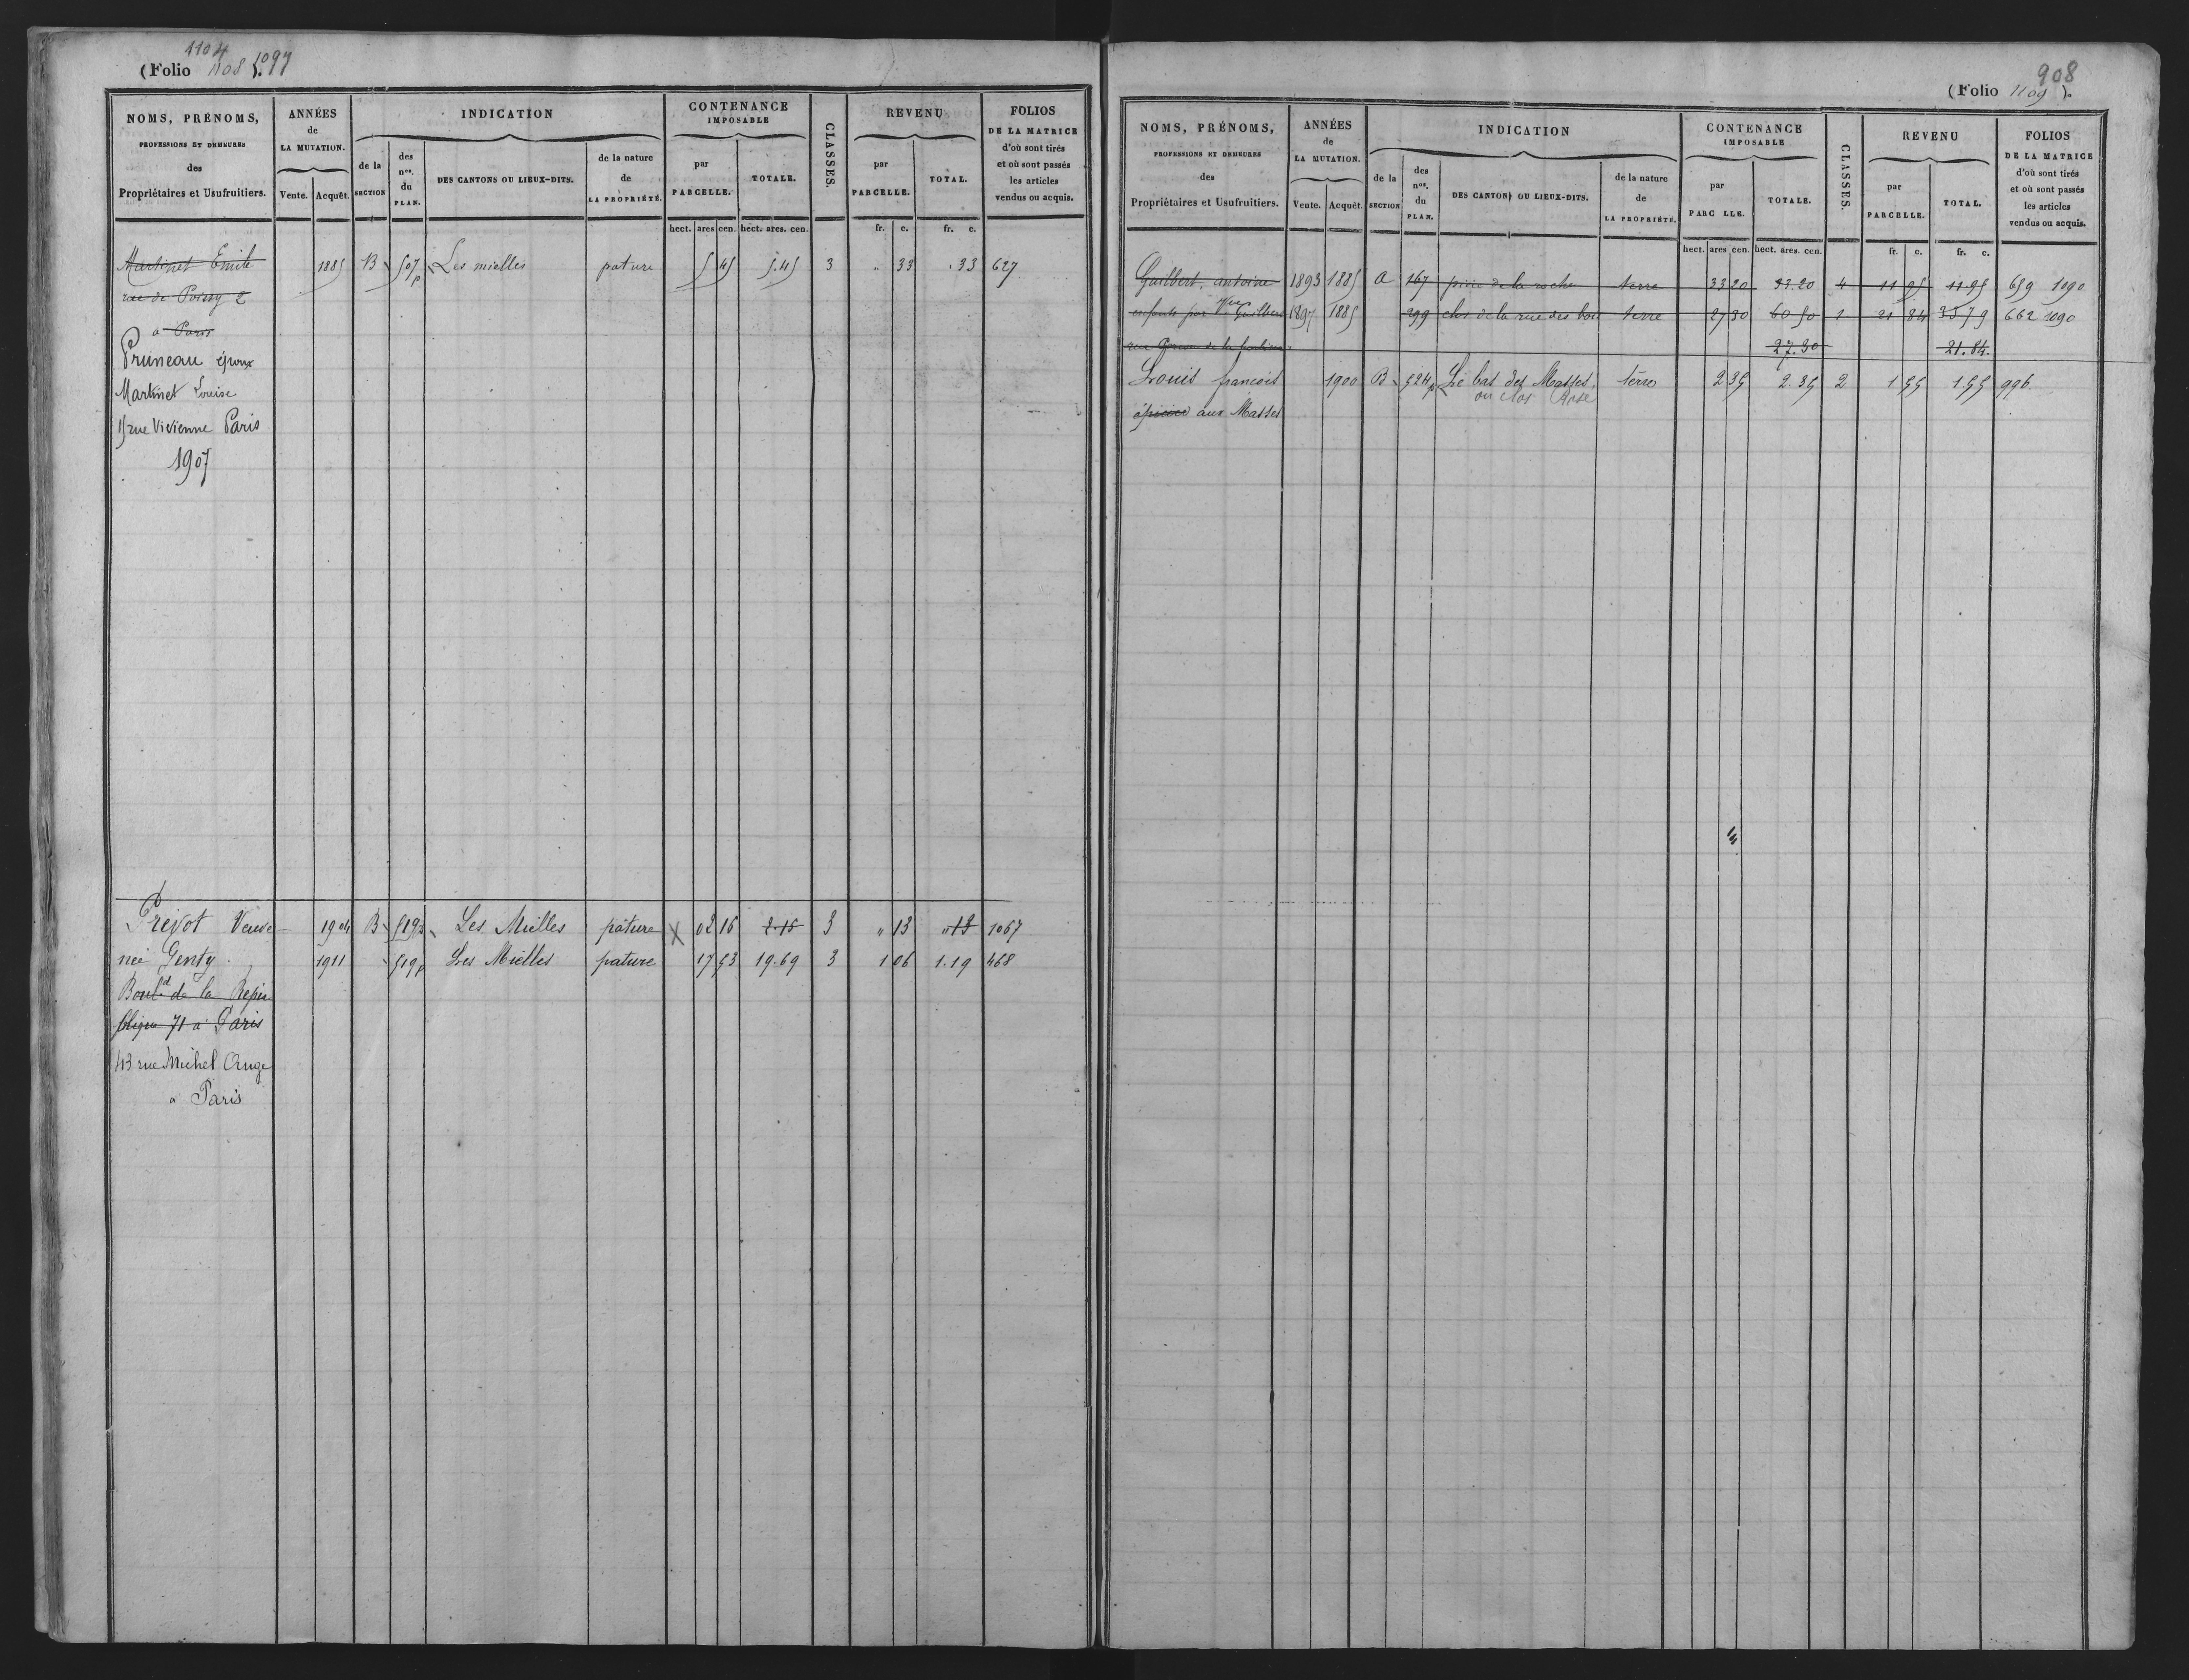 1104
(Folio 1108 ). 1097
NOMS, PRÉNOMS,
PROFESSIONS ET DEMEURES
des
Propriétaires et Usufruitiers.
ANNÉES
de
LA MUTATION.
Vente. Acquêt.
INDICATION
de la
SECTION
des
nos.
du
PLAN.
DES CANTONS OU LIEUX-DITS.
de la nature
de
LA PROPRIÉTÉ.
CONTENANCE
IMPOSABLE
par
PARCELLE.
TOTALE.
CLASSES.
REVENU
par
PARCELLE.
TOTAL.
FOLIOS
DE LA MATRICE
d'où sont tirés
et où sont passés
les articles
vendus ou acquis.
hect. ares cen. hect. ares. cen. fr. c. fr. c.
Martinet Emile 1885 B 507p Les mielles pature 5 45 5.45 3 " 33 " 33 627
rue de Poissy 2
a Paris
Pruneau époux
Martinet Louise
15 rue Vivienne Paris
1907
Prevot Veuve 1904 B 519p Les Mielles pâture X 02 16 2.16 3 " 13 " 13 1067
née Genty. 1911 519p Les Mielles pature 17 53 19.69 3 1 06 1.19 468
Bould de la Répu
blique 71 a Paris
43 rue Michel Ange
a Paris
908
(Folio 1109 ).
NOMS, PRÉNOMS,
PROFESSIONS ET DEMEURES
des
Propriétaires et Usufruitiers.
ANNÉES
de
LA MUTATION.
Vente. Acquêt.
INDICATION
de la
SECTION
des
nos.
du
PLAN.
DES CANTONS OU LIEUX-DITS.
de la nature
de
LA PROPRIÉTÉ.
CONTENANCE
IMPOSABLE
par
PARC LLE.
TOTALE.
CLASSES.
REVENU
par
PARCELLE.
TOTAL.
FOLIOS
DE LA MATRICE
d'où sont tirés
et où sont passés
les articles
vendus ou acquis.
hect. ares cen. hect. ares. cen. fr. c. fr. c.
Guilbert, antoine 1893 1885 A 167 de la roche terre 33 20 33.20 4 11 95 11.95 659 1090
enfants par Vve Guilbert 1897 1885 299 clos de la rue des bois terre 27 30 60 50 1 21 84 33 79 662 1090
rue de la fontaine 27.30 21.84
Louis francois 1900 B 524p Le bas des Masses terre 2 35 2.35 2 1 55 1.55 996
ou clos Rose
épicier aux Masses